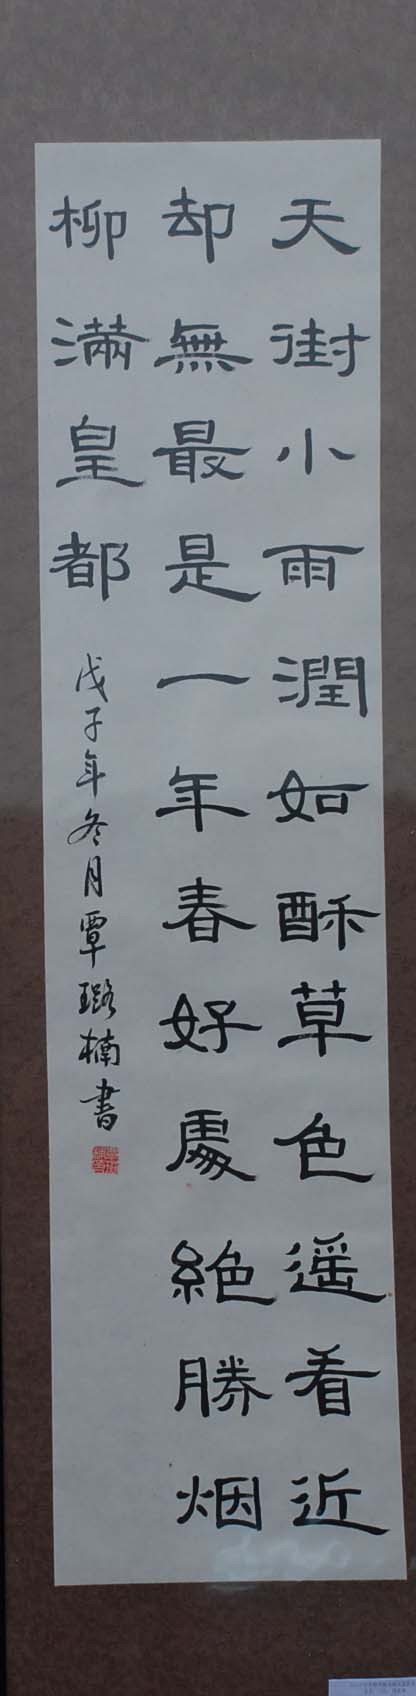 天街小雨潤如酥草色遥看近
却無最是一年春好處絶勝烟
柳满皇都
戊子年冬月覃璐楠書